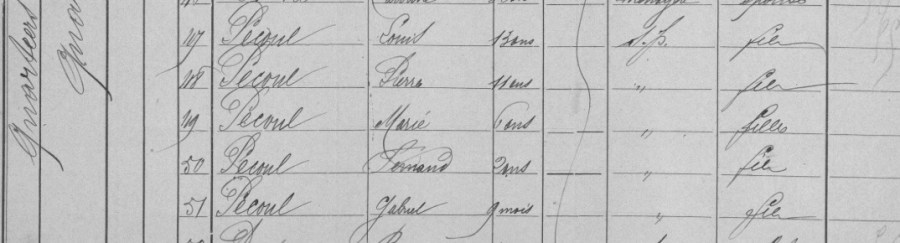 Quartiers
47 Pécoul Louis 13 ans s.p. fils
48 Pécoul Pierre 11 ans " fils
49 Pécoul Marie 6 ans " filles
50 Pécoul Fernand 2 ans " fils
51 Pécoul Gabriel 9 mois " fils